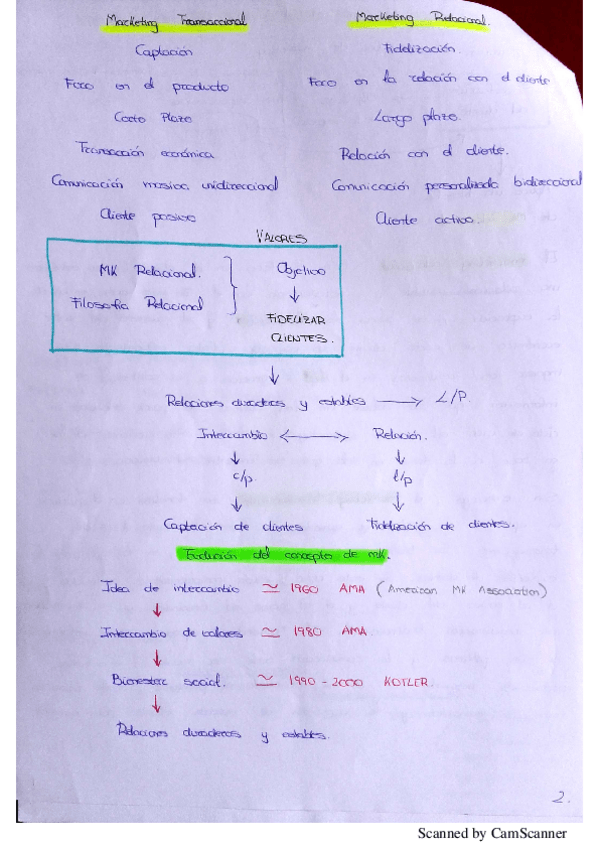 Marketing Transaccional    Marketing Relacional.
Captación    Fidelización.
Foco en el producto    Foco en la relación con el cliente
Corto Plazo    Largo plazo.
Transacción económica    Relación con el cliente.
Comunicación masiva unidireccional    Comunicación personalizada bidireccional
Cliente pasivo    Cliente activo.
VALORES
MK Relacional.    Objetivo
Filosofía Relacional    ↓
FIDELIZAR
CLIENTES.
↓
Relaciones duraderas y estables → L/P.
Intercambio ↔ Relación.
↓    ↓
c/p.    l/p
↓    ↓
Captación de clientes    Fidelización de clientes.
Evolución del concepto de mk.
Idea de intercambio ≃ 1960 AMA (American MK Association)
↓
Intercambio de valores ≃ 1980 AMA
↓
Bienestar social. ≃ 1990-2000 KOTLER.
↓
Relaciones duraderas y estables.
2.
Scanned by CamScanner